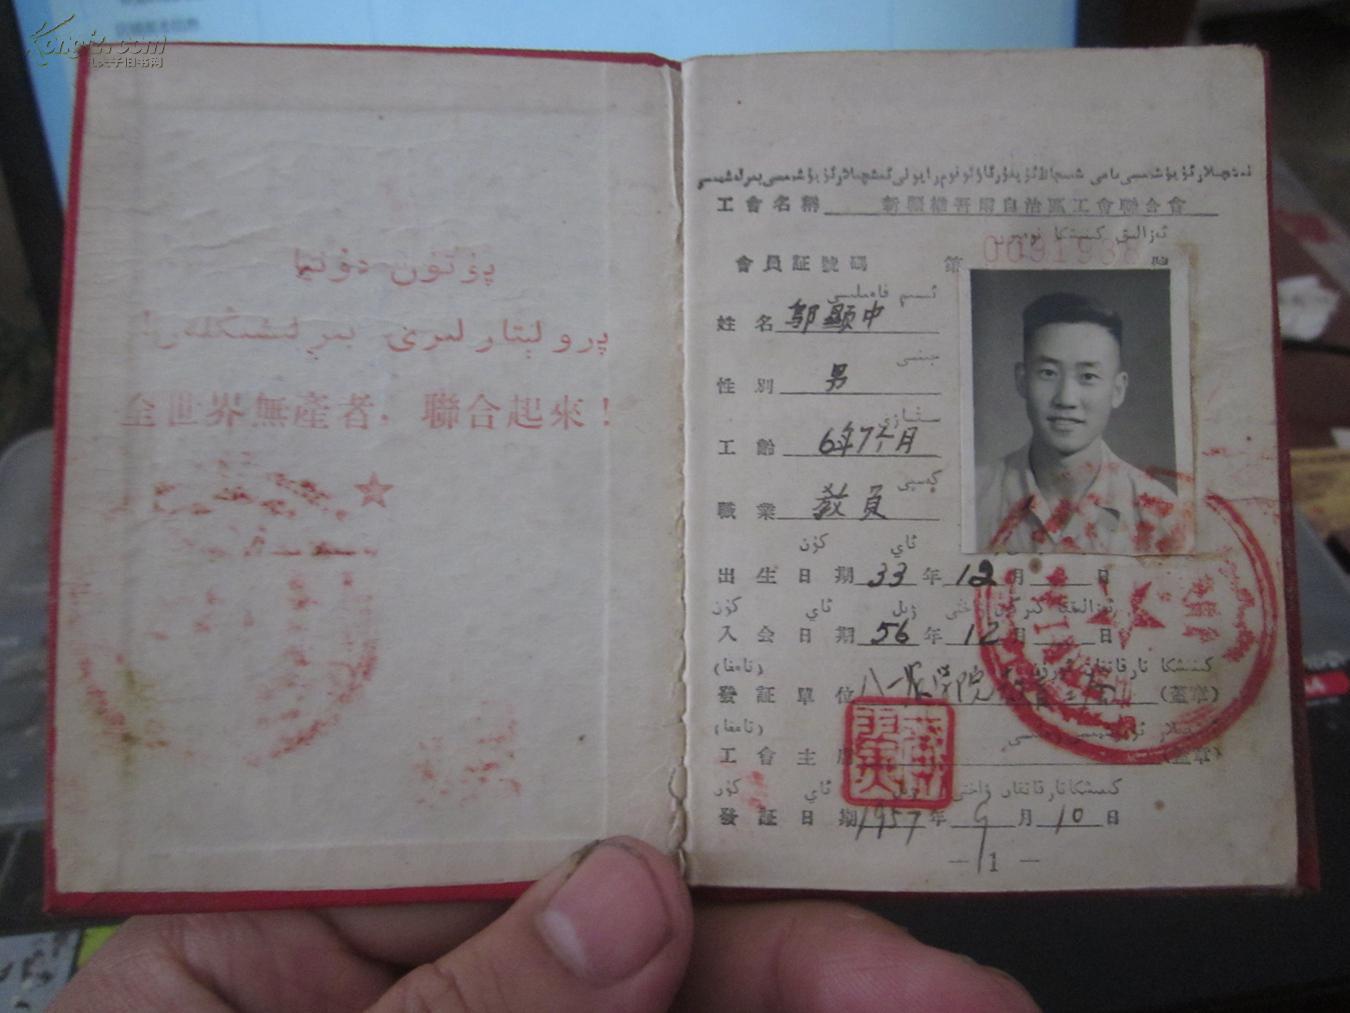 Kongfz.com
孔夫子旧书网
پۈتۈن دۇنيا
پرولېتارلىرى بىرلىشىڭلەر!
全世界無產者，聯合起來！
工會名稱 新疆維吾爾自治區工會聯合會
會員証號碼 第 009193 號
ئىسىم فامىلىسى
姓名 鄔顯中
جىنسى
性別 男
工齡 6年7个月
كەسپى
職業 敎員
ئاي كۈن
出生日期 33年12月 日
ژىل ئاي كۈن
入会日期 56年12月 日
(تامغا)
發証單位 八一农学院 (蓋章)
(تامغا)
工會主席 (蓋章)
ئاي كۈن
發証日期 1957年9月10日
— 1 —